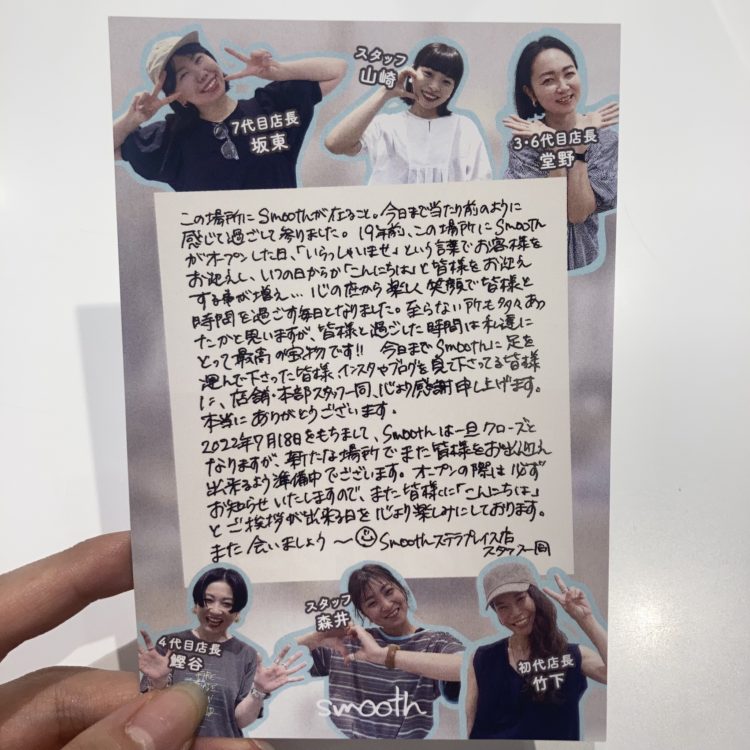 7代目店長
坂東
スタッフ
山崎
3・6代目店長
堂野
この場所にSmoothが在ること。今日まで当たり前のように
感じて過ごして参りました。19年前、この場所にSmooth
がオープンした日、「いらっしゃいませ」という言葉でお客様を
お迎えし、いつの日からか「こんにちは」と皆様をお迎え
する事が増え… 心の底から楽しく笑顔で皆様と
時間を過ごす毎日となりました。至らない所も多々あっ
たかと思いますが、皆様と過ごした時間は私達に
とって最高の宝物です!! 今日までSmoothに足を
運んで下さった皆様 インスタやブログを見て下さってる皆様
に、店舗・本部スタッフ一同、心より感謝申し上げます。
本当にありがとうございます。
2022年7月18日をもちまして、Smoothは一旦クローズと
なりますが、新たな場所でまた皆様をお出迎え
出来るよう準備中でございます。オープンの際は必ず
お知らせいたしますので、また皆様に「こんにちは」
とご挨拶が出来る日を心より楽しみにしております。
また会いましょう〜 Smoothステラプレイス店
スタッフ一同
4代目店長
鰹谷
スタッフ
森井
初代店長
竹下
smooth